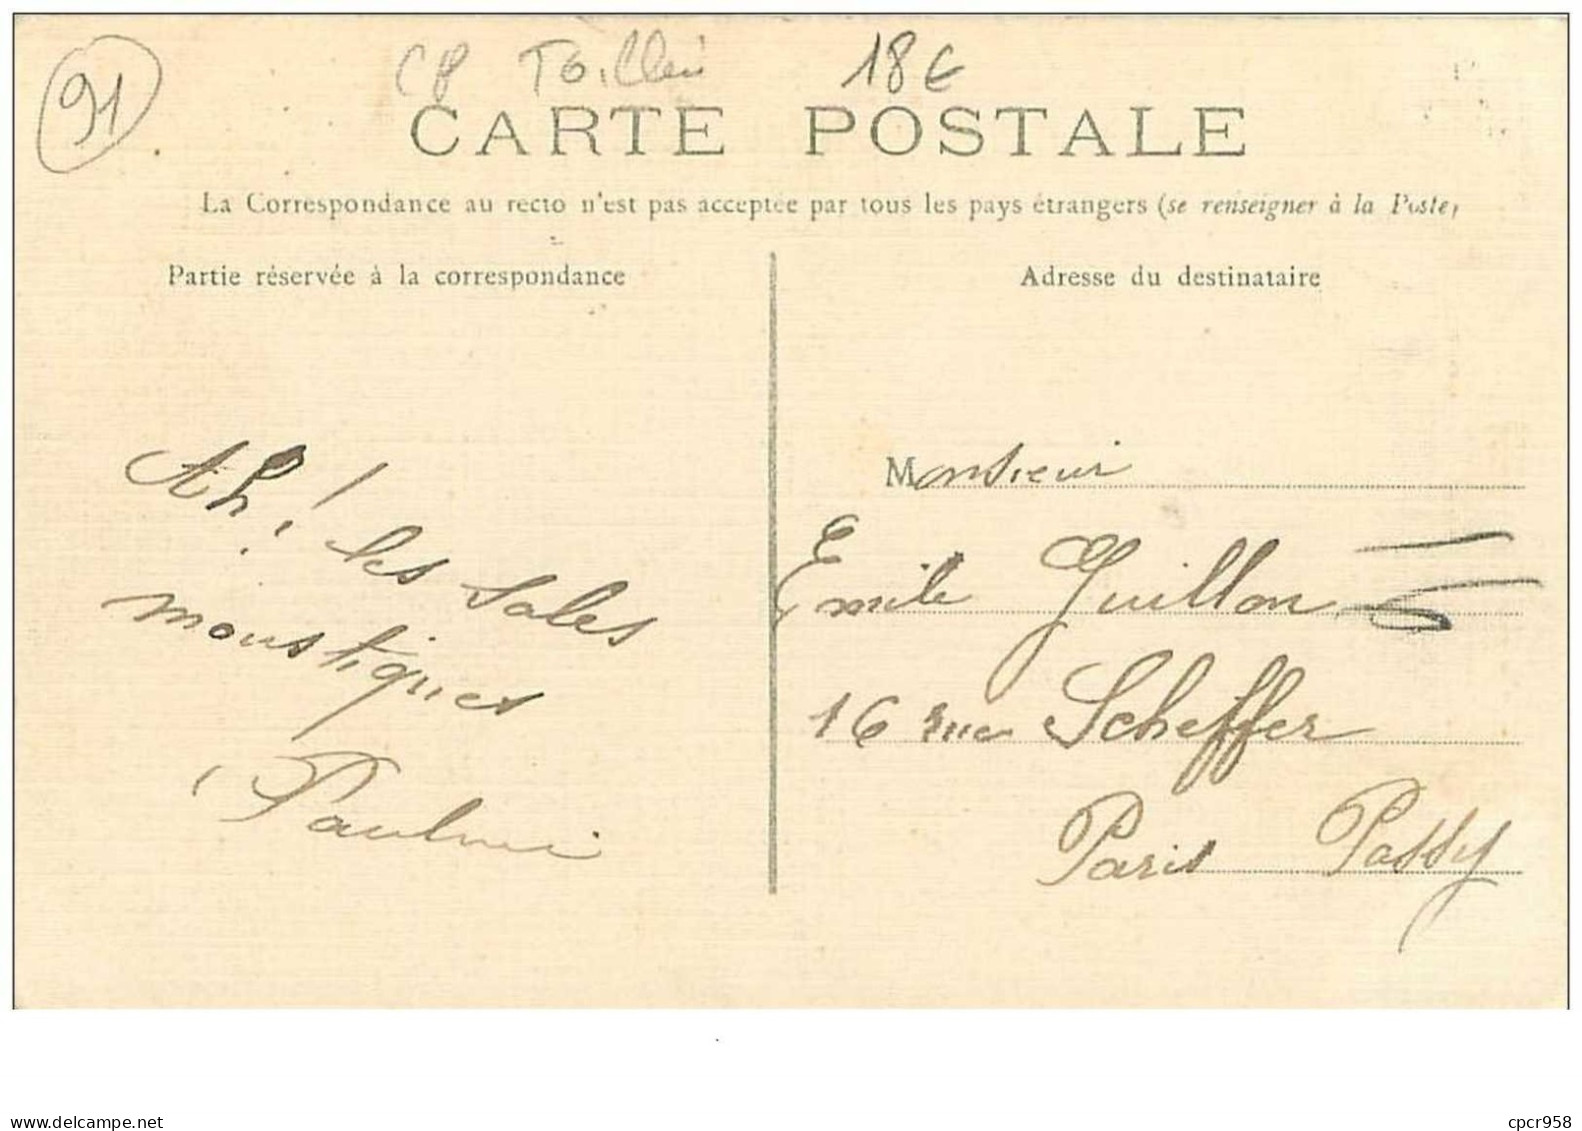 91
18€
CARTE POSTALE
La Correspondance au recto n'est pas acceptée par tous les pays étrangers (se renseigner à la Poste)
Partie réservée à la correspondance
Adresse du destinataire
Ah! les sales
moustiques
Monsieur
Emile Guillon
16 rue Scheffer
Paris Passy
www.delcampe.net
cpcr958